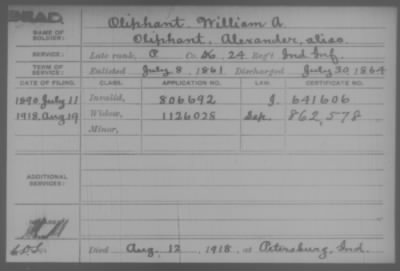 DEAD.
NAME OF SOLDIER: Oliphant, William A.
Oliphant, Alexander, alias
SERVICE: Late rank, P Co. K, 24 Reg't Ind. Inf.
TERM OF SERVICE: Enlisted July 8, 1861 Discharged July 30 1864
DATE OF FILING. CLASS. APPLICATION NO. LAW. CERTIFICATE NO.
1890 July 11 Invalid, 806692 J. 641606
1918 Aug 19 Widow, 1126028 Sep. 862,578
Minor,
ADDITIONAL SERVICES:
Died Aug. 12, 1918, at Petersburg, Ind.